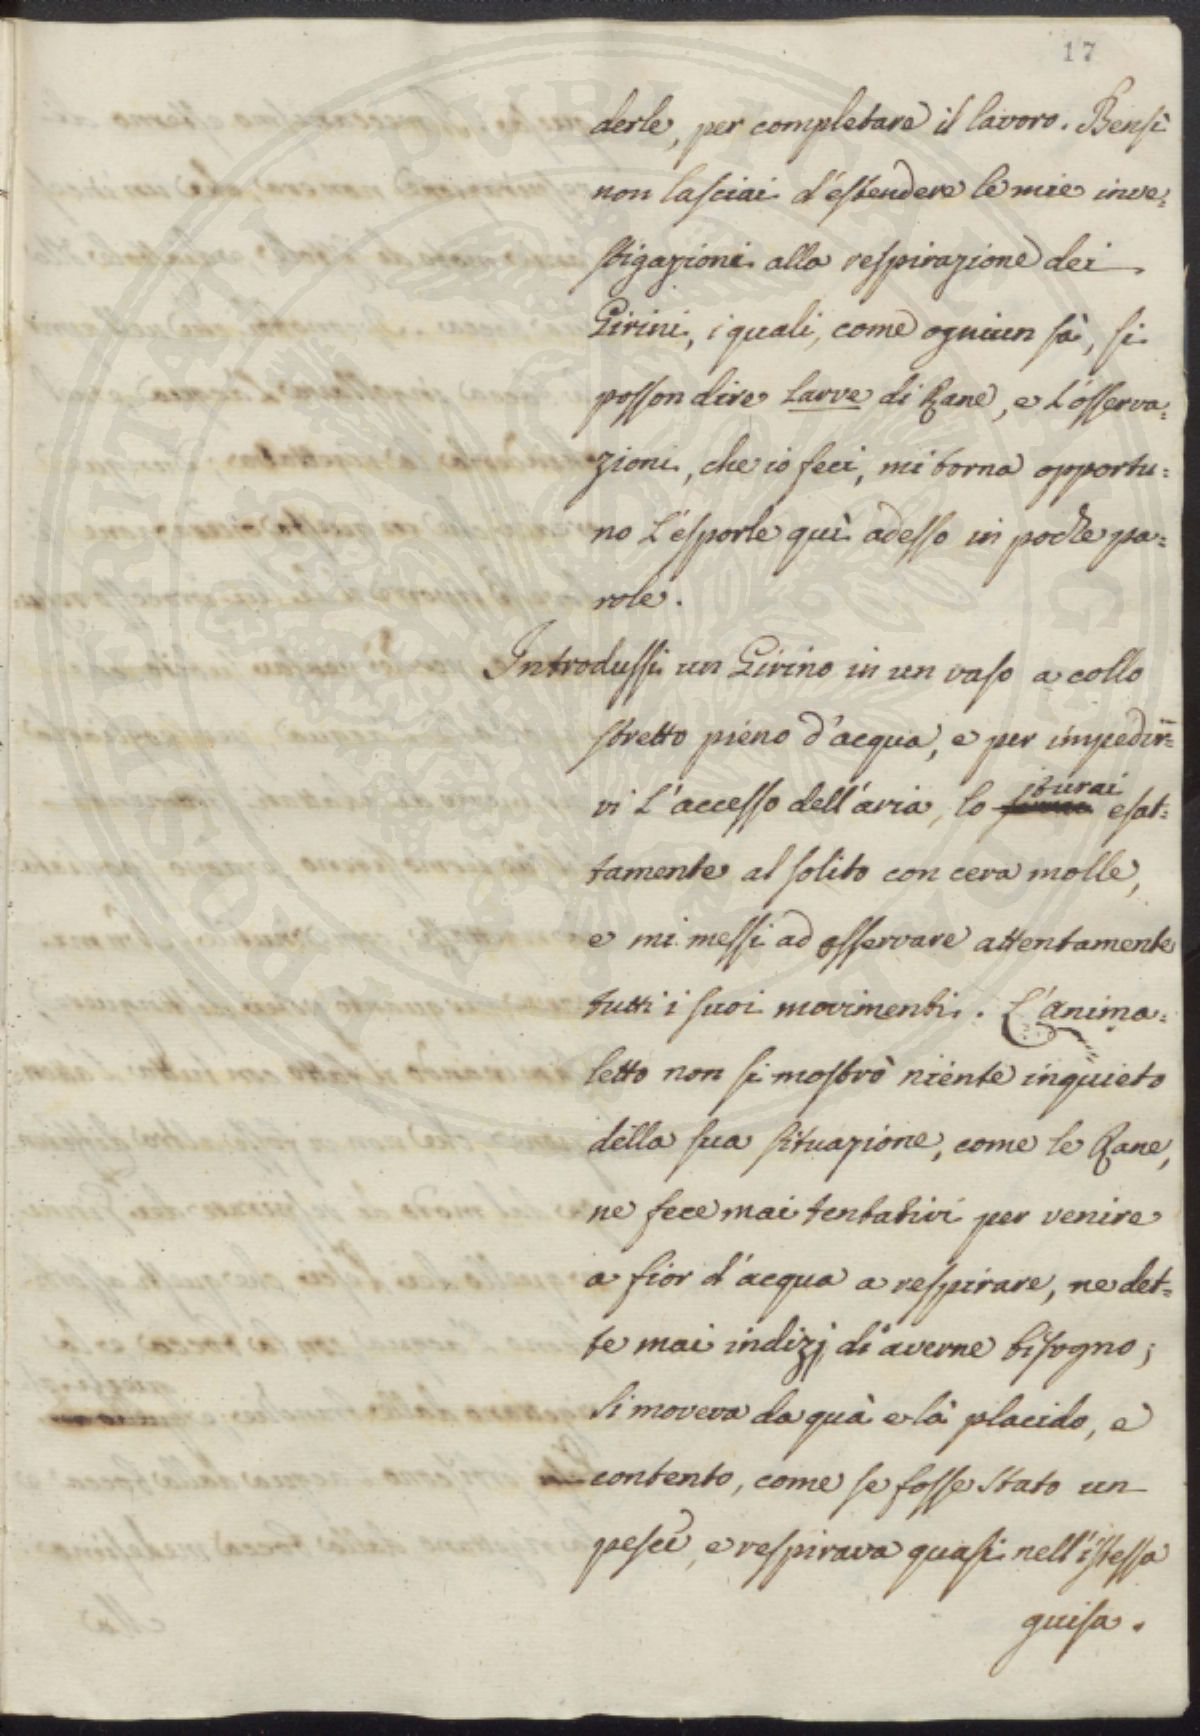 17
derle, per completare il lavoro. Bensì
non lasciai d'estendere le mie inve=
stigazioni alla respirazione dei
Girini, i quali, come ogniun sà, si
posson dire larve di Rane, e l'osserva=
zioni, che io feci, mi torna opportu=
no l'esporle quì adesso in poche pa=
role.
Introdussi un Girino in un vaso a collo
stretto pieno d'acqua, e per impedir=
vi l'accesso dell'aria, lo sturai esat=
tamente al solito con cera molle,
e mi messi ad osservare attentamente
tutti i suoi movimenti. L'anima=
letto non si mostrò niente inquieto
della sua situazione, come le Rane,
ne fece mai tentativi per venire
a fior d'acqua a respirare, ne det=
te mai indizj di averne bisogno;
si moveva da quà e là placido, e
contento, come se fosse stato un
pesce, e respirava quasi nell'istessa
guisa.